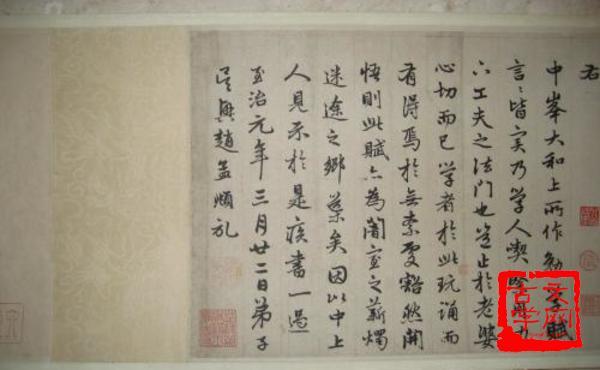 右
中峯大和上所作勉学賦
言〻皆实乃学人喫緊用力
下工夫之法門也岂止於老婆
心切而已学者於此玩誦而
有得焉於無索处豁然開
悟則此賦亦為闇室之薪燭
迷途之鄉矣因以中上
人見示於是疾書一過
至治元年三月廿二日弟子
吴興趙孟頫札